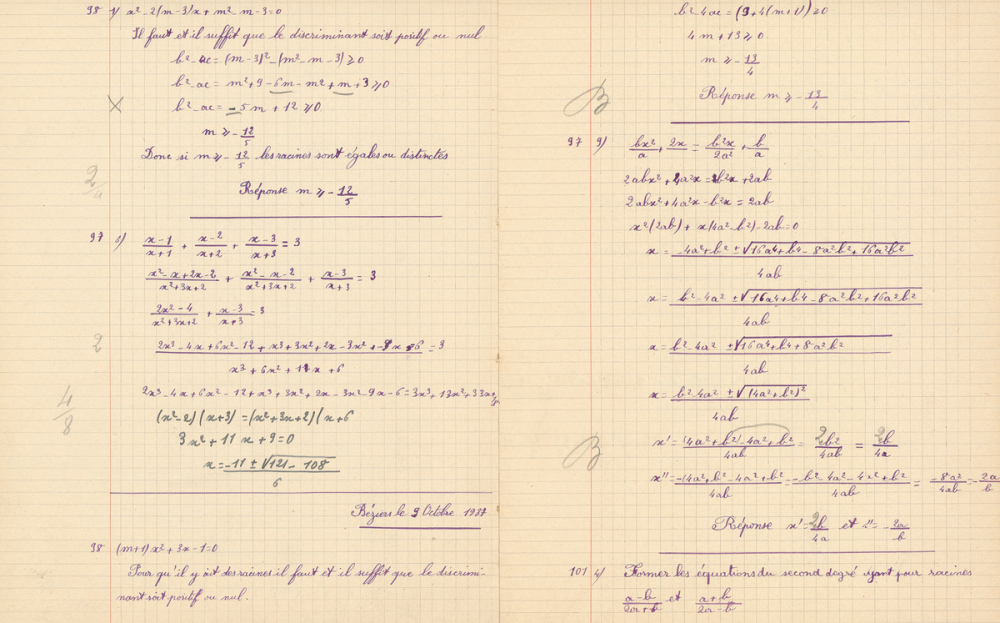 98 1) x² - 2(m-3)x + m² m - 3 = 0
Il faut et il suffit que le discriminant soit positif ou nul
b² - ac = (m-3)² - (m² - m - 3) ≥ 0
b² - ac = m² + 9 - 6m - m² + m + 3 ≥ 0
b² - ac = -5m + 12 ≥ 0
m ≥ - 12/5
Donc si m ≥ - 12/5 les racines sont égales ou distinctes
2/4
Réponse m ≥ - 12/5
97 8) (x-1)/(x+1) + (x-2)/(x+2) + (x-3)/(x+3) = 3
(x² - x + 2x - 2)/(x² + 3x + 2) + (x² - x - 2)/(x² + 3x + 2) + (x-3)/(x+3) = 3
(2x² - 4)/(x² + 3x + 2) + (x-3)/(x+3) = 3
2
(2x³ - 4x + 6x² - 12 + x³ + 3x² + 2x - 3x² - 9x - 6)/(x³ + 6x² + 11x + 6) = 3
2x³ - 4x + 6x² - 12 + x³ + 3x² + 2x - 3x² - 9x - 6 = 3x³, 13x², 33x
4/8
(x² - 2)(x+3) = (x² + 3x + 2)(x+6
3x² + 11x + 9 = 0
x = (-11 ± √121 - 108)/6
Béziers le 9 Octobre 1937
98 (m+1)x² + 3x - 1 = 0
Pour qu'il y ait des racines il faut et il suffit que le discrimi-
nant soit positif ou nul.
b² - 4ac = (9 + 4(m+1) ≥ 0
4m + 13 ≥ 0
m ≥ - 13/4
B
Réponse m ≥ - 13/4
97 9) bx²/a + 2x = b²x/2a² + b/a
2abx² + 4a²x = b²x + 2ab
2abx² + 4a²x - b²x = 2ab
x²(2ab) + x(4a² - b²) - 2ab = 0
x = (-4a² + b² ± √16a⁴ + b⁴ - 8a²b² + 16a²b²)/4ab
x = (b² - 4a² ± √16a⁴ + b⁴ - 8a²b² + 16a²b²)/4ab
x = (b² - 4a² ± √16a⁴ + b⁴ + 8a²b²)/4ab
x = (b² - 4a² ± √(4a² + b²)²)/4ab
B
x' = (4a² + b²) - 4a² + b²/4ab = 2b²/4ab = 2b/4a
x'' = -(4a² + b² - 4a² + b²)/4ab = (-b² - 4a² - 4a² + b²)/4ab = -8a²/4ab = -2a/b
Réponse x' = 2b/4a et x'' = -2a/b
101 4) Former les équations du second degré ayant pour racines
(a-b)/(2a+b) et (a+b)/(2a-b)